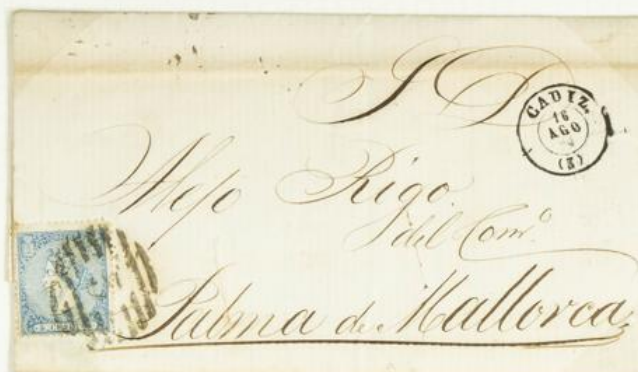 S D
CADIZ.
16
AGO
(3)
Alejo Rigo
del Com.º
Palma de Mallorca